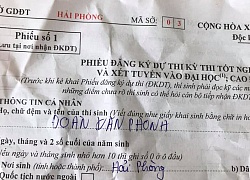 SỞ GDĐT HẢI PHÒNG MÃ SỞ: 0 3 CỘNG HÒA
Phiếu số 1
(Lưu tại nơi nhận ĐKDT)
PHIẾU ĐĂNG KÝ DỰ THI KỲ THI TỐT NG
VÀ XÉT TUYỂN VÀO ĐẠI HỌC; CAO
(Trước khi kê khai Phiếu đăng ký dự thi (ĐKDT), thí sinh phải đọc kỹ các m
điểm chưa rõ thí sinh có thể hỏi cán bộ tiếp nhận ĐKDT
THÔNG TIN CÁ NHÂN
Họ, chữ đệm và tên của thí sinh (Viết đúng như giấy khai sinh bằng chữ in h
ĐOÀN VĂN PHONG
ngày, tháng và 2 số cuối của năm sinh
ngày và tháng nhỏ hơn 10 thì ghi số 0 ở ô đầu)
Nơi sinh (tỉnh hoặc thành phố): Hải Phòng
Quốc tịch nước ngoài